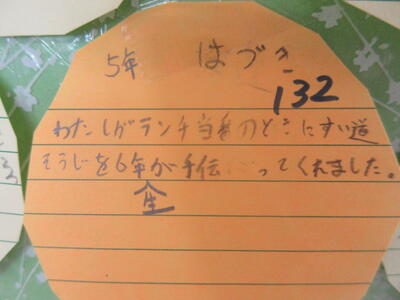 5年 はづき
132
わたしがランチ当番のときにすい道
そうじを6年が手伝ってくれました。
生